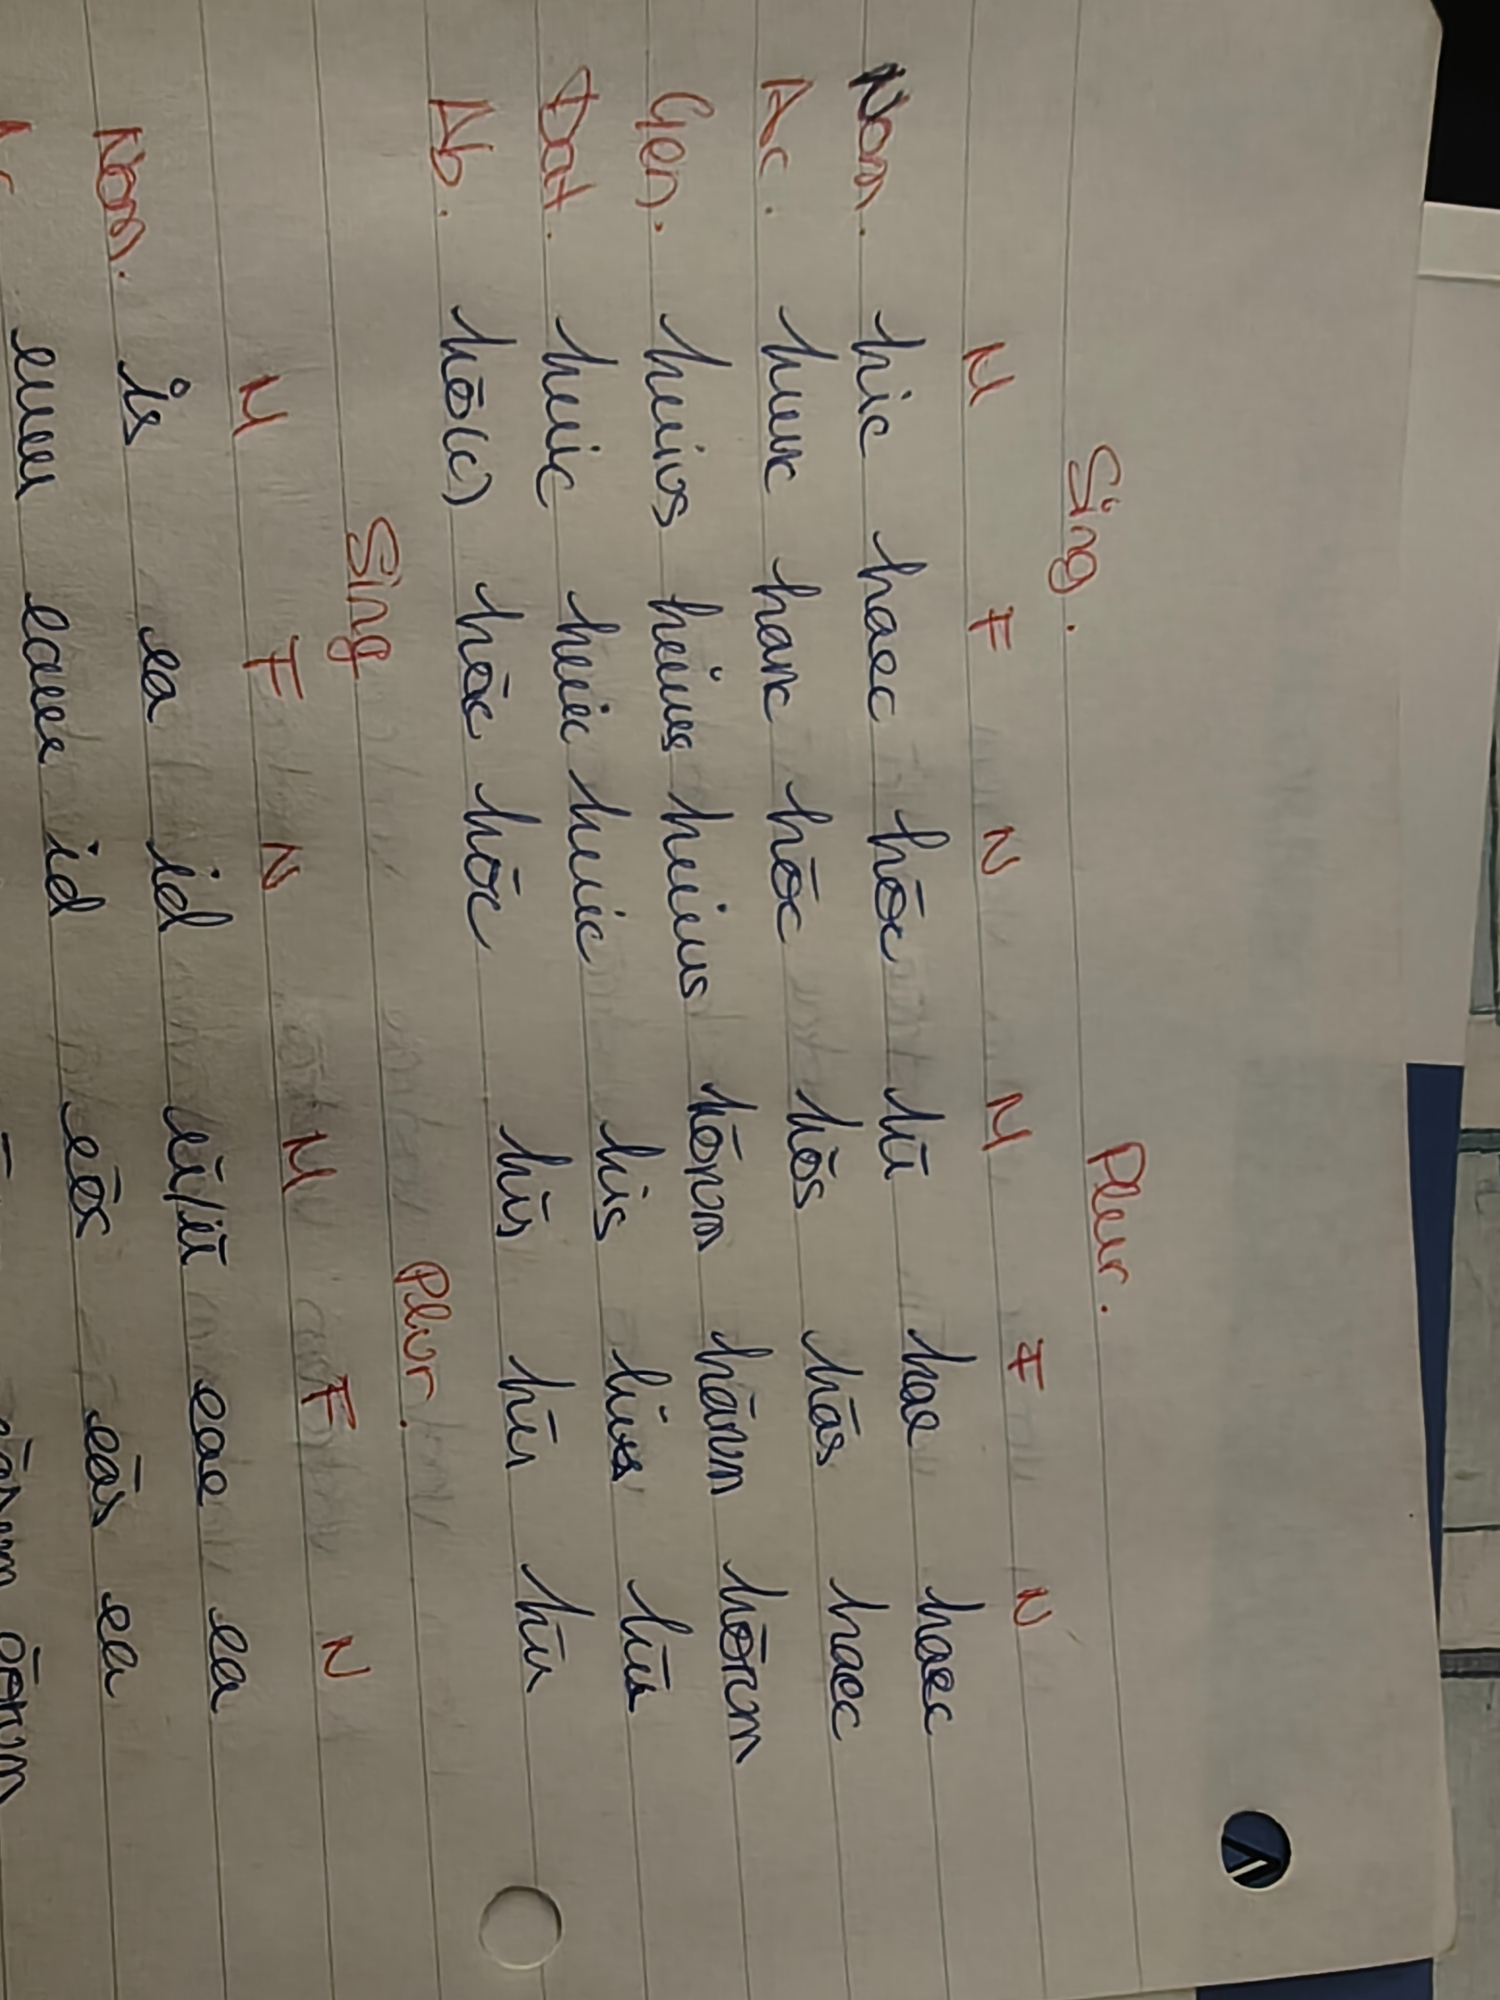 Sing. Plur.
M F N M F N
Nom. hic haec hōc hī hae haec
Ac. hunc hanc hōc hōs hās haec
Gen. huius huius huius hōrum hārum hōrum
Dat. huic huic huic his hīs hīs
Ab. hōc(c) hāc hōc hīs hīs hīs
Sing Plur.
M F N M F N
Nom. is ea id eī/iī eae ea
eum eam id eōs eās ea